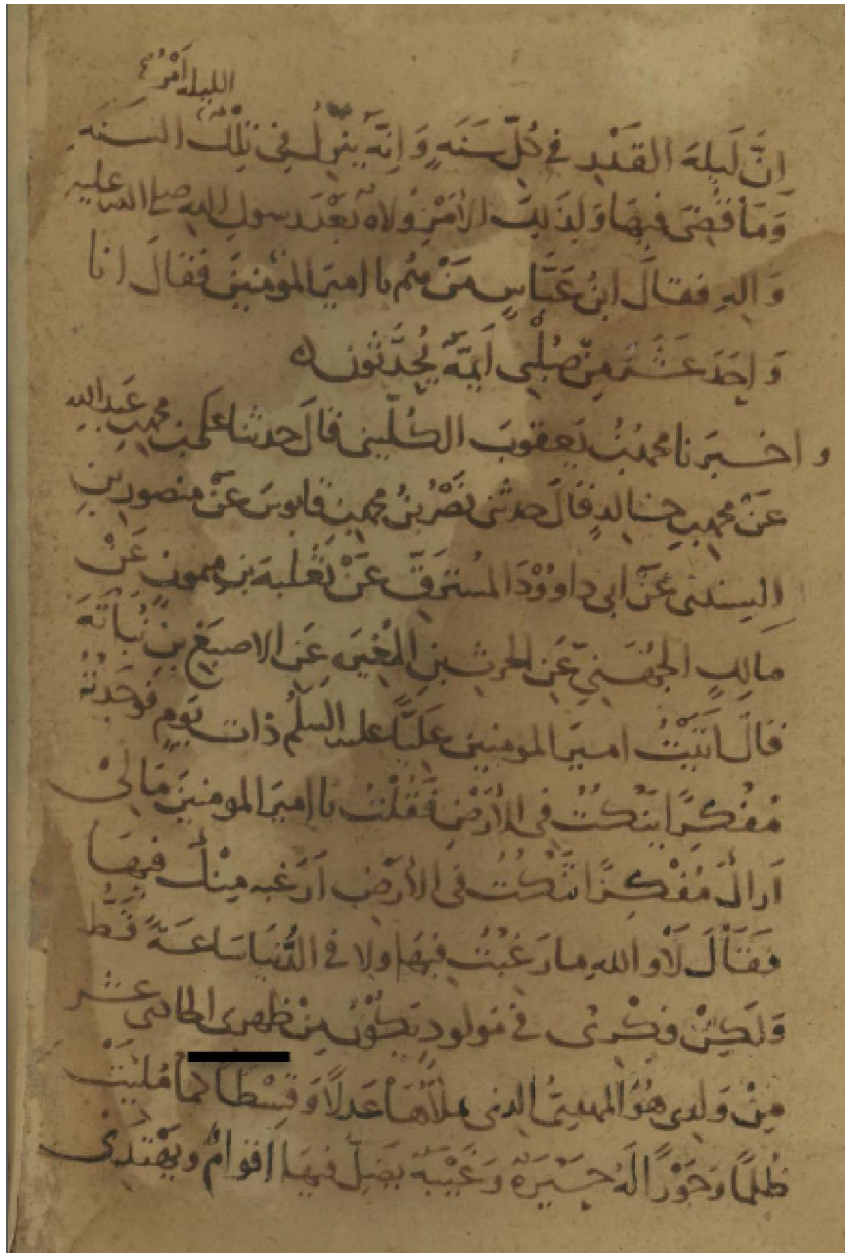 الليلة أمر
انَّ لَيلةَ القَدْرِ في كُلِّ سَنَةٍ وَانَّهُ يَنزِلُ في تِلْكَ السَنَةِ
وَمَا قُضِيَ فيهَا وَلِذَلِكَ الأَمْرِ وُلاةٌ بَعْدَ رسولِ اللهِ صلى الله عليه
وَالِهِ فقالَ ابنُ عَبَّاسٍ مَنْ هُم يا اميرَ المؤمنينَ فقالَ انا
وَاحَدَ عَشَرَ مِنْ صُلْبي اَئِمَّةٌ يُحَدَّثُون
و اخبرنا محمدبنُ يَعقوبَ الكُلَيني قالَ حدثنا علي بن محمد بن عَبدالله
عَنْ محمدبن خالدٍ قالَ حدثنى نَصْرُبنُ محمدبن قابوسَ عَنْ منصورِبنِ
السِندي عَنْ ابى داوُوْدَ المُسْتَرقِّ عَنْ ثَعْلبة بن ميمون عَنْ
مالكٍ الجُهَنيّ عَنِ الحرثِ بنِ المُغيَرةِ عَنِ الاصبَغِ بنِ نُبَاتَةَ
قالَ اَتَيْتُ اميرَ المومنين عَليًّا عليه السلمُ ذات يَومٍ فوَجَدْتُهُ
مُفْكِرًا يَنْكتُ في الأَرْضِ فَقُلْتُ يا اميرَ المومنينَ مَالىْ
اَراكَ مُفْكِرًا تَنْكُتُ في الأرْضِ اَرَغبة مِنْكَ فيهَا
فَقَالَ لَا والله ما رَغِبْتُ فيهَا ولا في الدُّنيَا سَاعَةً قَطُّ
وَلَكِنْ فِكْرى في مَولودٍ يَكُوْنُ مِنْ ظهرى الحادى عشر
مِنْ وَلدِى هُوَ المهدىُّ الذى يملأُهَا عَدلاً وَقِسْطًا كما مُلِيَتْ
ظُلمًا وَجَوْرًا لَهُ حَيْرَةٌ وَغَيْبَةٌ يَضِلُّ فيهَا اَقوامٌ ويَهْتدى